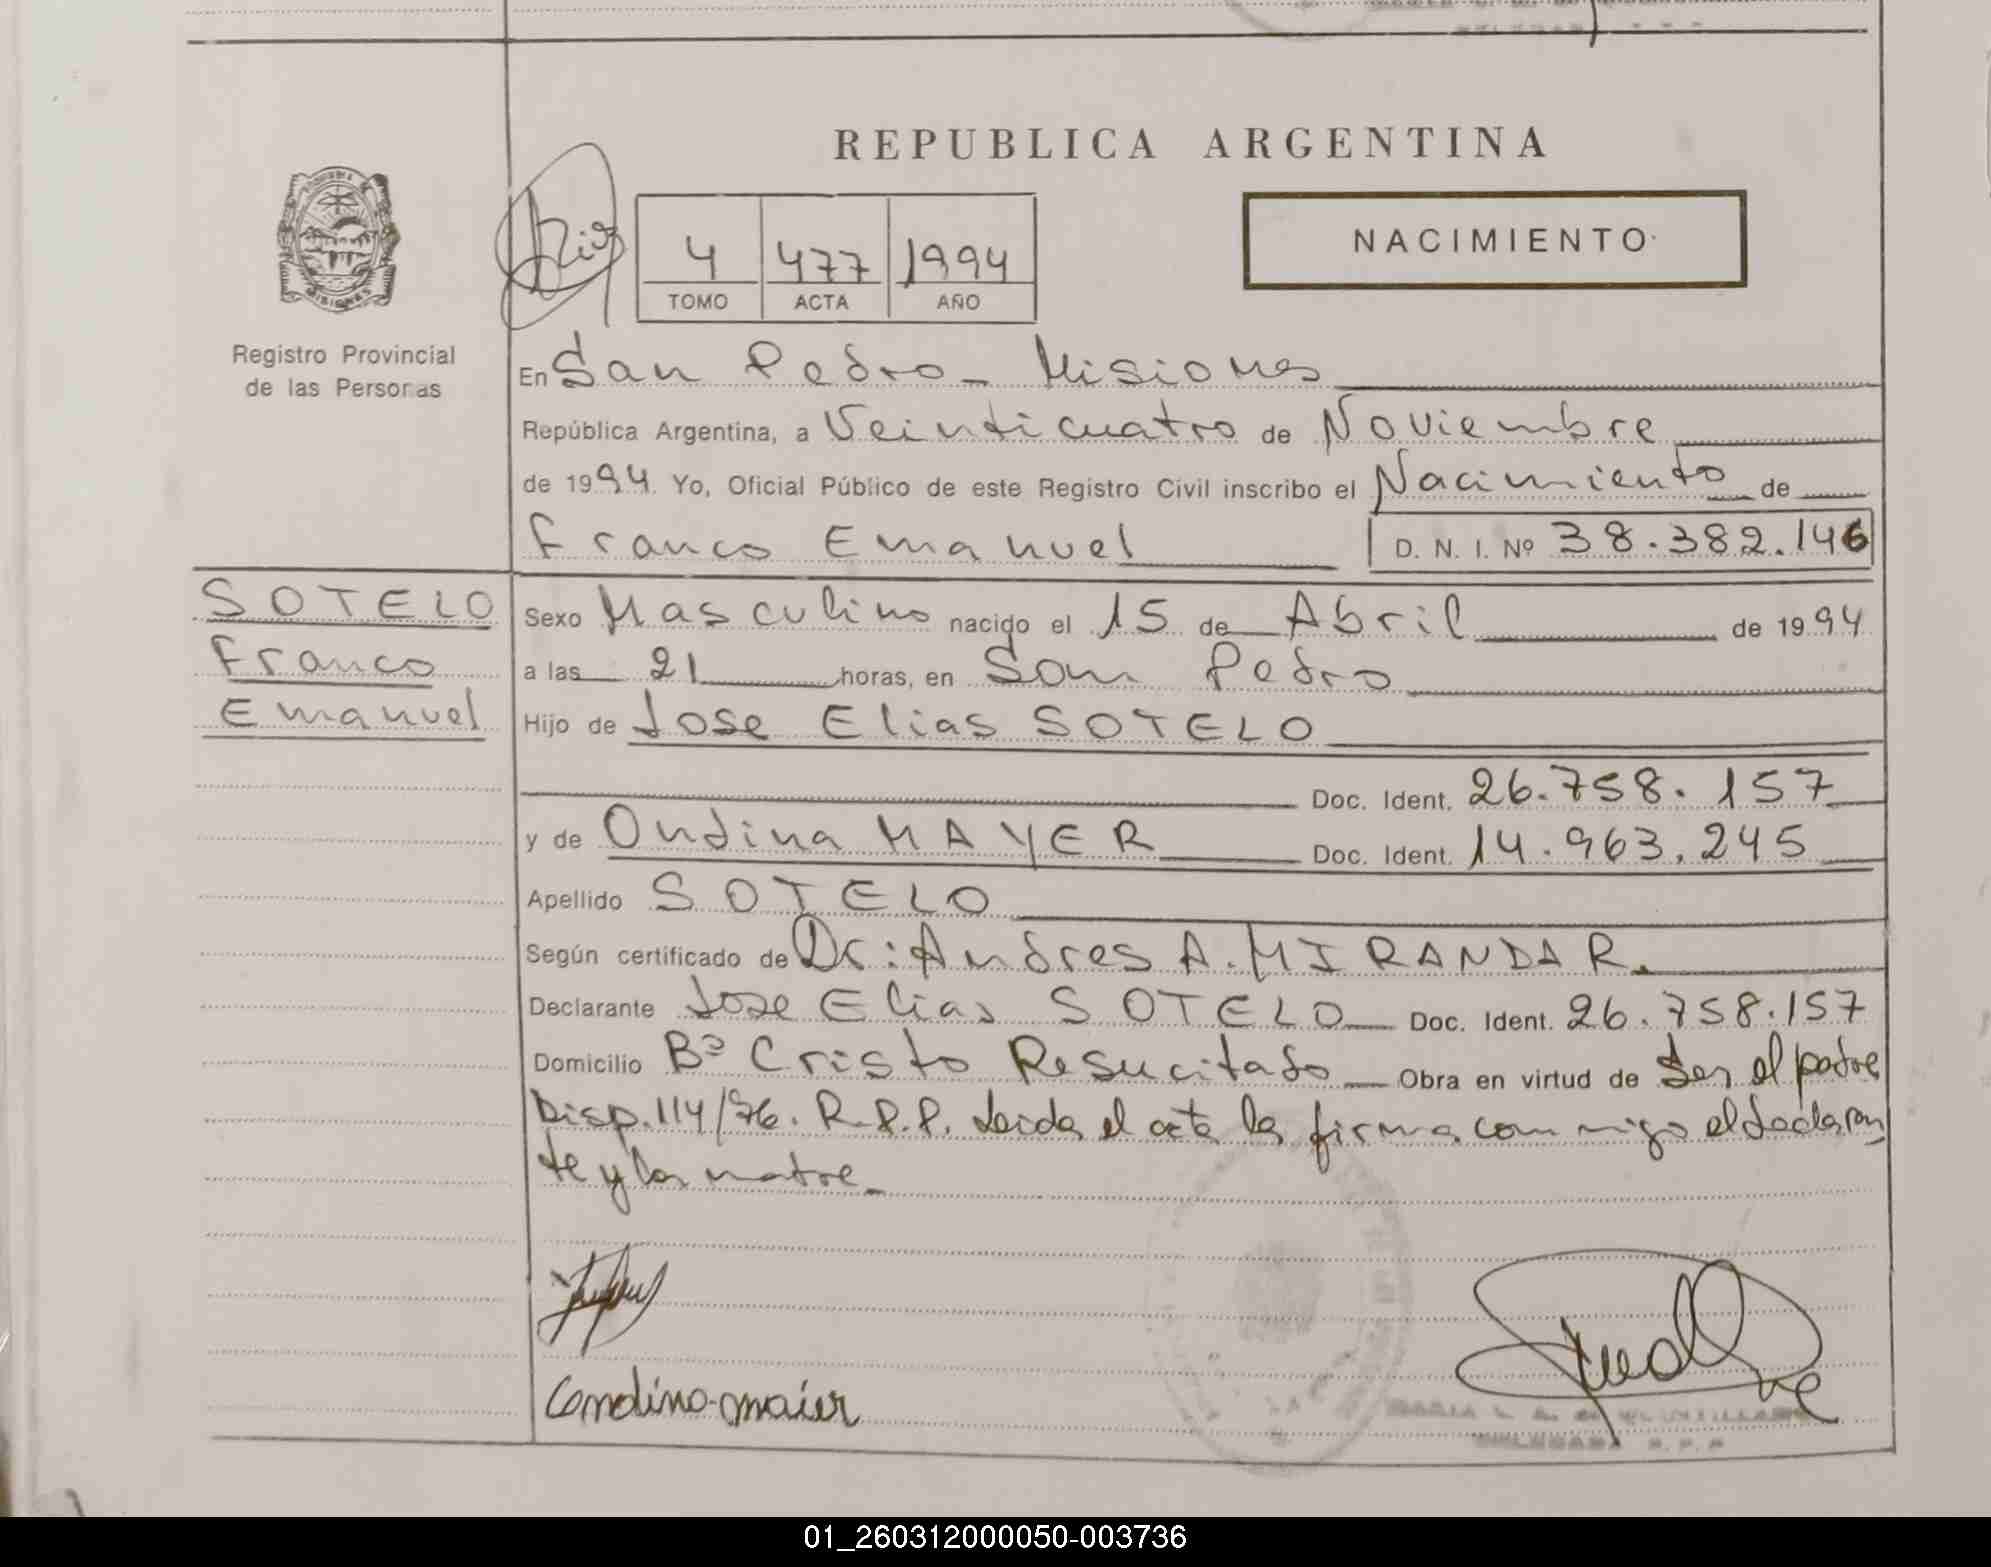 REPUBLICA ARGENTINA
NACIMIENTO
4 477 1994
TOMO ACTA AÑO
MISIONES
Registro Provincial
de las Personas
En San Pedro - Misiones
República Argentina, a Veinticuatro de Noviembre
de 1994. Yo, Oficial Público de este Registro Civil inscribo el Nacimiento de
Franco Emanuel D. N. I. Nº 38.382.146
SOTELO
Franco
Emanuel
Sexo Masculino nacido el 15 de Abril de 1994
a las 21 horas, en San Pedro
Hijo de Jose Elias SOTELO
Doc. Ident. 26.758.157
y de Ondina MAYER Doc. Ident. 14.963.245
Apellido SOTELO
Según certificado de Dr: Andres A. MIRANDA R.
Declarante Jose Elias SOTELO Doc. Ident. 26.758.157
Domicilio Bº Cristo Resucitado Obra en virtud de Ser el padre
Disp. 114/76. R.P.P. Leida el acta la firma conmigo el declaran
te y la madre.
maier
DELEGADA R. P. P.
01_260312000050-003736